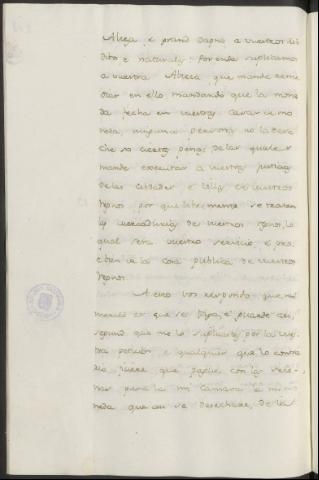 Alteza, e grand dapno a vuestros sub
ditos e naturales Por ende suplicamos
a vuestra Alteza que mande reme
diar en ello mandando que la mone
da fecha en vuestras Casas de mo
neda, ninguna persona no la dese
che so ciertas penas, de las quales
mande executar a vuestras justicias
de las cibdades e villas de vuestros
Regnos por que libremente se traten
las mercadurias de vuestros Regnos, lo
qual sera vuestro servicio, e pro,
e bien de la cosa publica de vuestros
Regnos.
A esto vos respondo que mi
merced es que se faga, e guarde se
segund que me lo suplicastes por la vues
tra peticion e qualquier que lo contra
rio ficiere que pague con las sete
nas para la mi Camara la mi mo
neda que ansi se desechare, de la